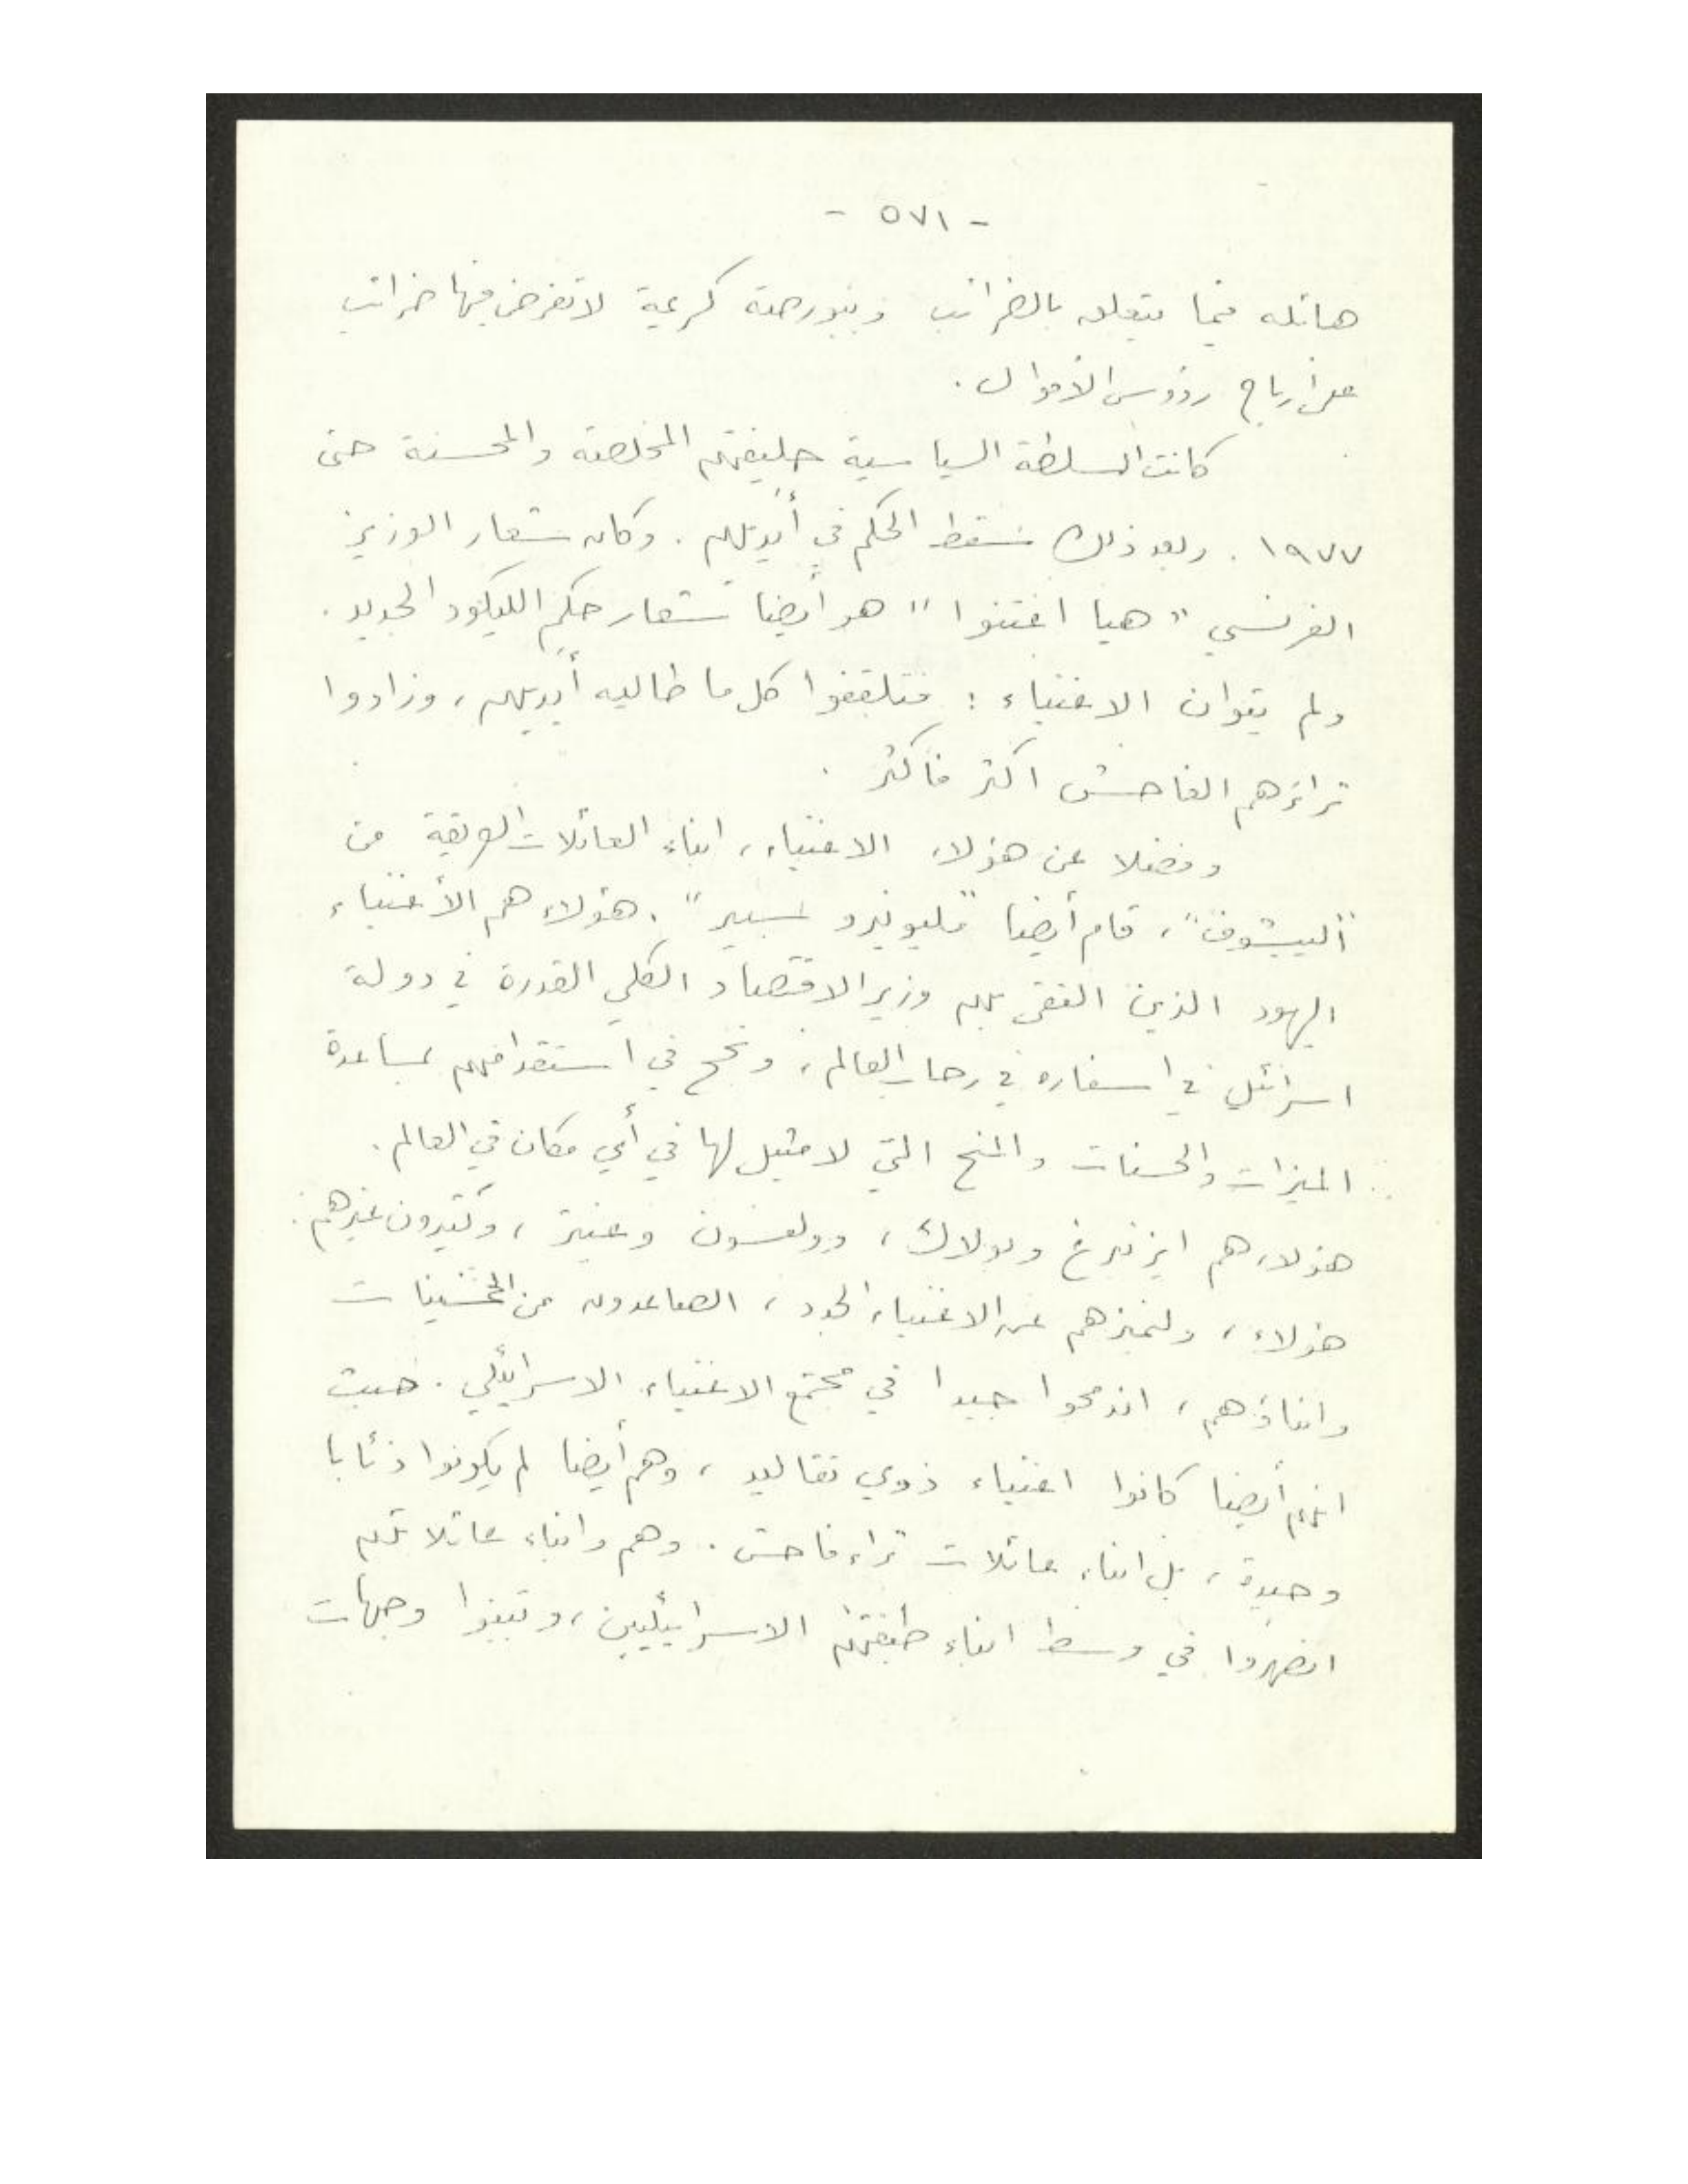 - ٥٧١ -
هائله فيما يتعلق بالضرائب وببورصة كريمة لا تفرض فيها ضرائب
على أرباح رؤوس الأموال .
كانت السلطة السياسية حليفتهم المخلصة والمحسنة حتى
١٩٧٧ . وبعد ذلك سقط الحكم في أيديهم . وكان شعار الوزير
الفرنسي " هيا اغتنوا " هو أيضا شعار حكم الليكود الجديد .
ولم يتوان الاغنياء : فتلقفوا كل ما طاليه أيديهم ، وزادوا
ثراءهم الفاحش اكثر فأكثر .
وفضلا عن هؤلاء الاغنياء ، ابناء العائلات العريقة من
"الييشوف" ، قام أيضا "مليونيرو سبير" . هؤلاء هم الأغنياء
اليهود الذين التقى بهم وزير الاقتصاد الكلي القدرة في دولة
اسرائيل في اسفاره في رحاب العالم ، ونجح في استقدامهم بمساعدة
الميزات والحسنات والمنح التي لا مثيل لها في أي مكان في العالم .
هؤلاء هم ايزنبرغ وبولاك ، وولفسون وغيتر ، وكثيرون غيرهم .
هؤلاء ، ولنميزهم عن الاغنياء الجدد ، الصاعدون من الخمسينات
وابناؤهم ، اندمجوا جيدا في مجتمع الاغنياء الاسرائيلي . حيث
انهم أيضا كانوا اغنياء ذوي تقاليد ، وهم أيضا لم يكونوا ذئابا
وحيدة ، بل ابناء عائلات ثراء فاحش . وهم وابناء عائلاتهم
انصهروا في وسط ابناء طبقتهم الاسرائيليين ، وتبنوا وجهات